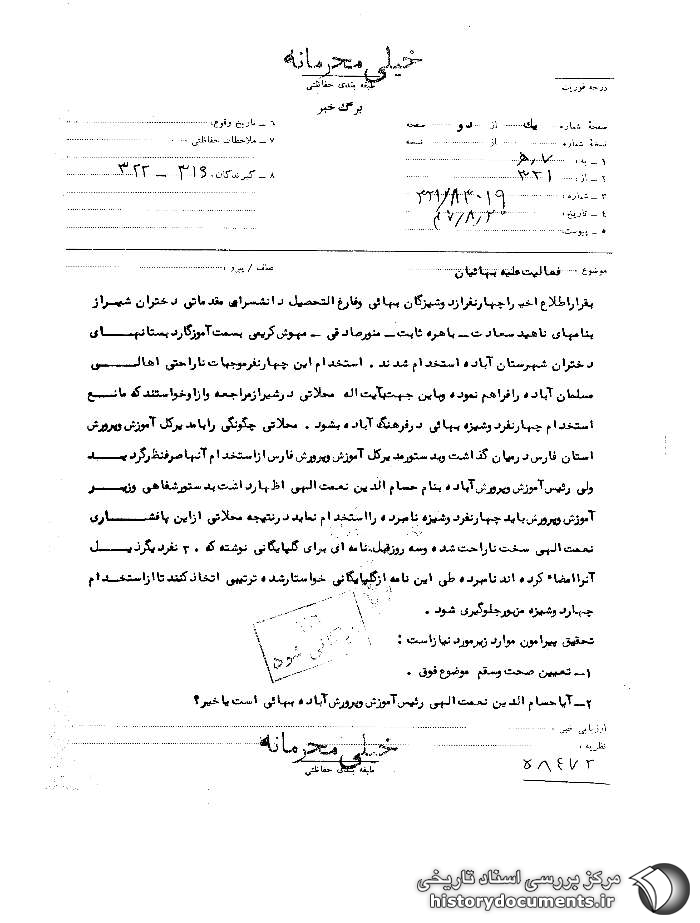 خیلی محرمانه
طبقه بندی حفاظتی
برگ خبر
درجه فوریت
صفحهٔ شماره: یک از دو صفحه
نسخهٔ شماره: از نسخه
۱ ـ به:
۲ ـ از: ۳۲۱
۳ ـ شماره: ۳۲۱/۸۳۰۱۹
۴ ـ تاریخ:
۵ ـ پیوست:
۶ ـ تاریخ وقوع:
۷ ـ ملاحظات حفاظتی
۸ ـ گیرندگان: ۳۱۶ ـ ۳۲۲
موضوع: فعالیت علیه بهائیان
عطف / پیرو:
بقرار اطلاع اخیرا چهار نفر از دوشیزگان بهائی و فارغ التحصیل دانشسرای مقدماتی دختران شیراز
بنامهای ناهید سعادت ـ باهره ثابت ـ منور صادقی ـ مهوش کریمی بسمت آموزگار دبستانهای
دختران شهرستان آباده استخدام شدند . استخدام این چهار نفر موجبات ناراحتی اهالی
مسلمان آباده را فراهم نموده و باین جهت بآیت اله محلاتی در شیراز مراجعه و از او خواستند که مانع
استخدام چهار نفر دوشیزه بهائی در فرهنگ آباده بشود . محلاتی چگونگی را با مدیر کل آموزش و پرورش
استان فارس در میان گذاشت و بدستور مدیر کل آموزش و پرورش فارس از استخدام آنها صرفنظر گردید
ولی رئیس آموزش و پرورش آباده بنام حسام الدین نعمت الهی اظهار داشت بدستور شفاهی وزیر
آموزش و پرورش باید چهار نفر دوشیزه نامبرده را استخدام نماید در نتیجه محلاتی از این پافشاری
نعمت الهی سخت ناراحت شده و سه روز قبل نامه ای برای گلپایگانی نوشته که ۳۰ نفر دیگر ذیل
آنرا امضاء کرده اند نامبرده طی این نامه از گلپایگانی خواستار شده ترتیبی اتخاذ کنند تا از استخدام
چهار دوشیزه مزبور جلوگیری شود .
تحقیق پیرامون موارد زیر مورد نیاز است :
۱ـ تعیین صحت و سقم موضوع فوق .
۲ـ آیا حسام الدین نعمت الهی رئیس آموزش و پرورش آباده بهائی است یا خیر؟
ارزیابی خبر:
نظریه:
خیلی محرمانه
طبقه بندی حفاظتی
۵۸۴۷۲
مرکز بررسی اسناد تاریخی
historydocuments.ir